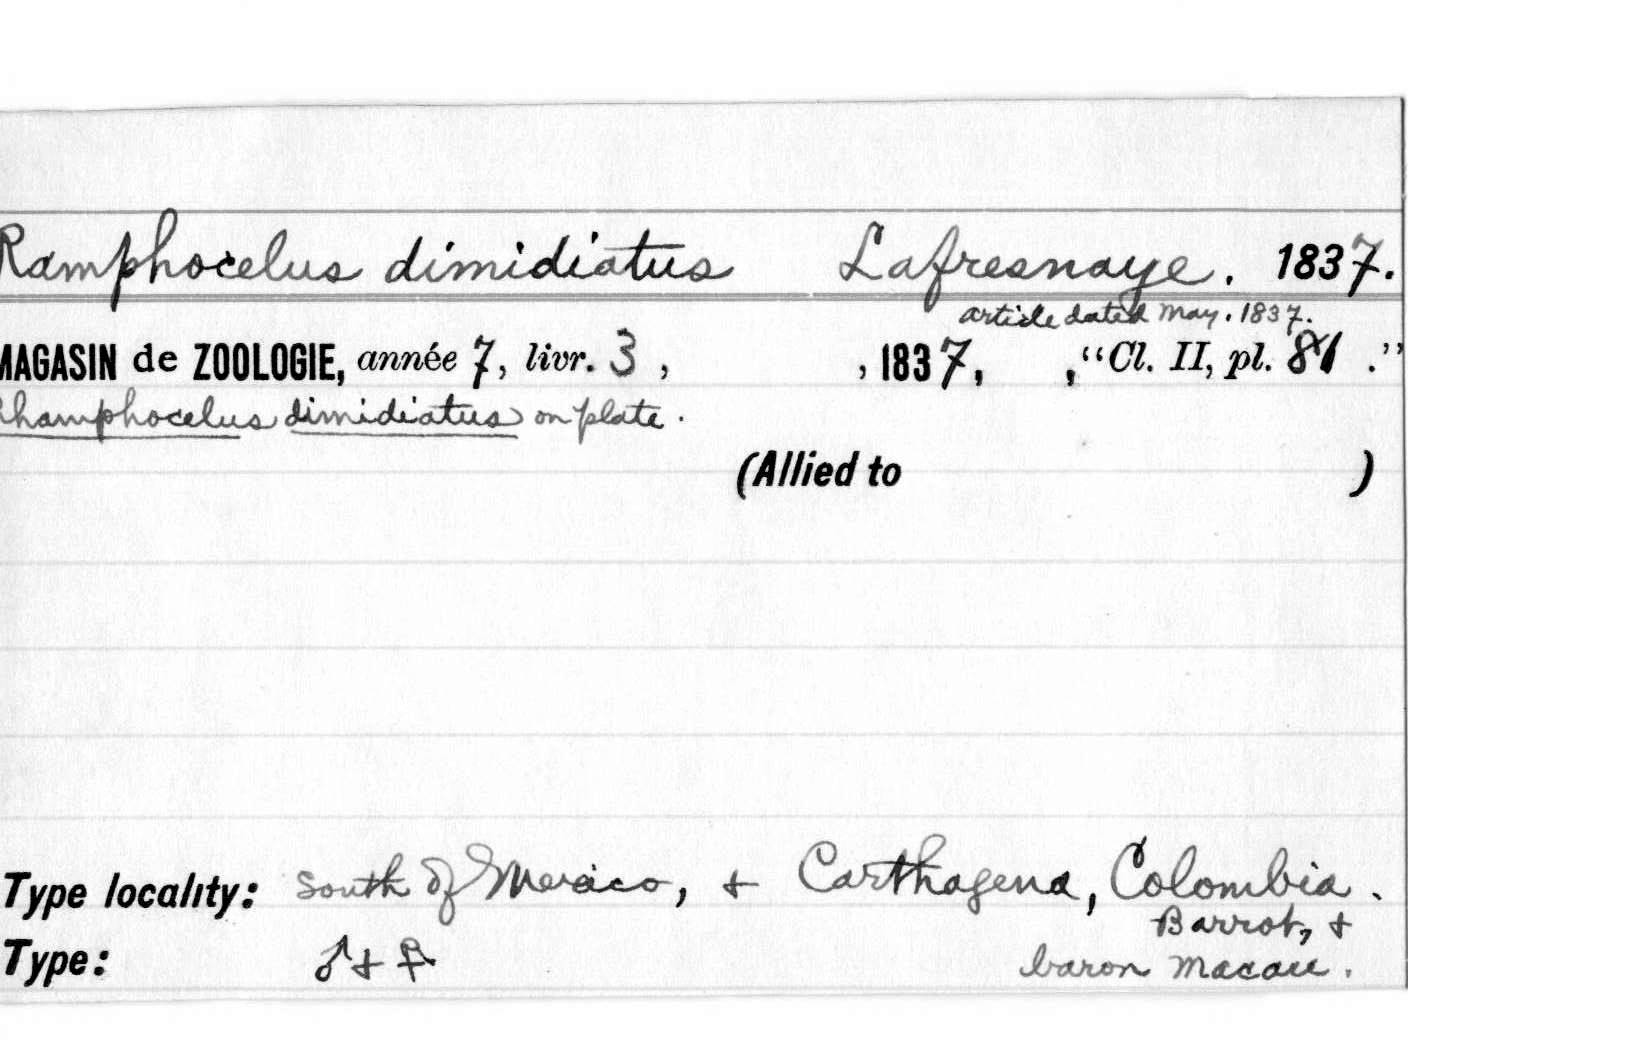 Ramphocelus dimidiatus Lafresnaye. 1837.
article dated May. 1837.
MAGASIN de ZOOLOGIE, année 7, livr. 3 , , 1837, , "Cl. II, pl. 81 ."
Rhamphocelus dimidiatus on plate.
(Allied to )
Type locality: South of Mexico, + Carthagena, Colombia.
Barrot, +
Type: ♂ + ♀ baron Macau.